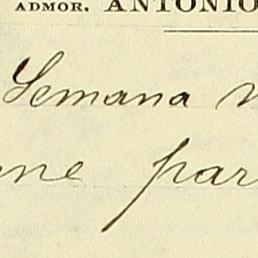 ADMOR. ANTONIO
Semana
par